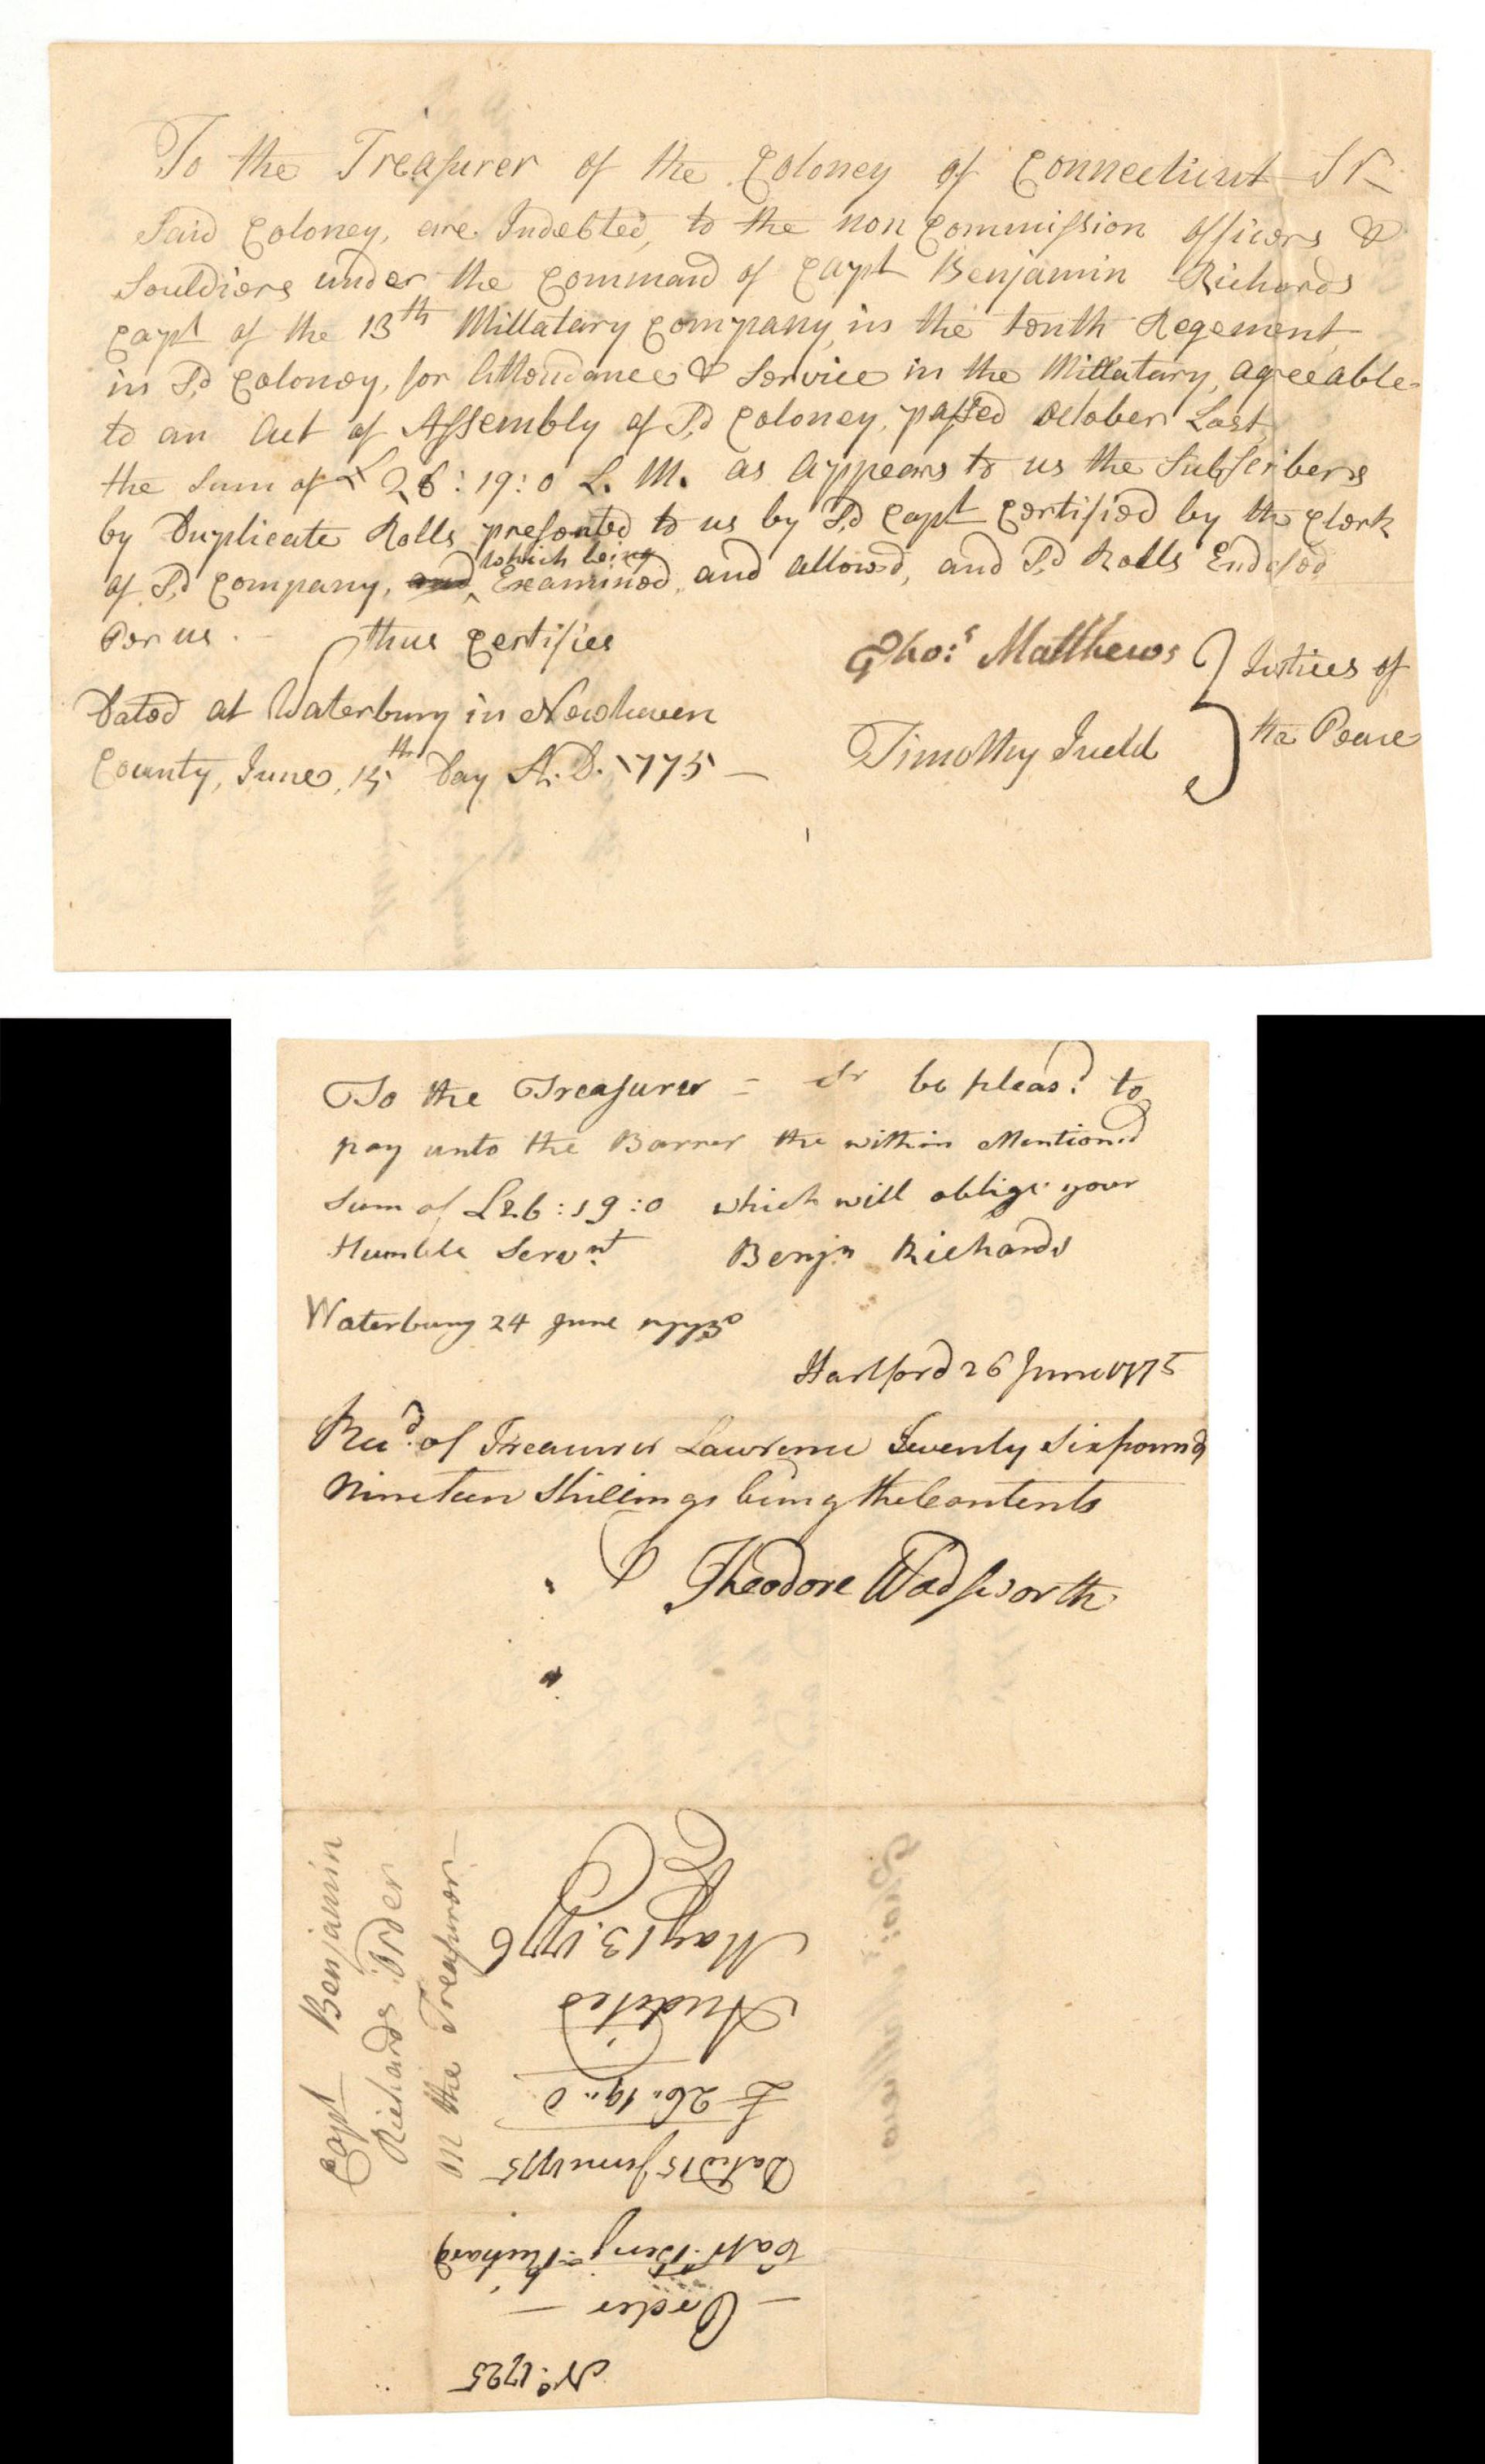 To the Treasurer of the Coloney of Connecticut Sr
Said Coloney, are Indebted, to the non Commission officers &
Souldiers under the Command of Capt Benjamin Richards
Capt of the 13th Millatary Company, in the tenth Regement
in Sd Coloney, for Attendance & Service in the Millatary, agreeable
to an Act of Assembly of Sd Coloney, passed October Last,
the Sum of £26:19:0 L. M. as appears to us the Subscribers
by Duplicate Rolls presented to us by Sd Capt Certified by the Clerk
of Sd Company, and which being Examined, and allowed, and Sd Rolls Endosed
Per us. thus Certifies
Thos: Matthews } Justices of
Dated at Waterbury in Newhaven
County, June, 15th Day A.D. 1775
Timothy Judd } the Peace
To the Treasurer = Sr be pleasd to
pay unto the Barrer the within Mentiond
Sum of £26:19:0 which will oblige your
Humble Servnt Benjn Richards
Waterbury 24 June 1775
Hartford 26 June 1775
Recd of Treasurer Lawrence Twenty Six pounds
Nineteen Shillings being the Contents
P Theodore Wadsworth
Capt Benjamin
Richards Order
on the Treasuror
No: 1725
Order
Capt. Benjn Richards
Dated 15 June 1775
£26..19..0
Audited
May 13. 1776